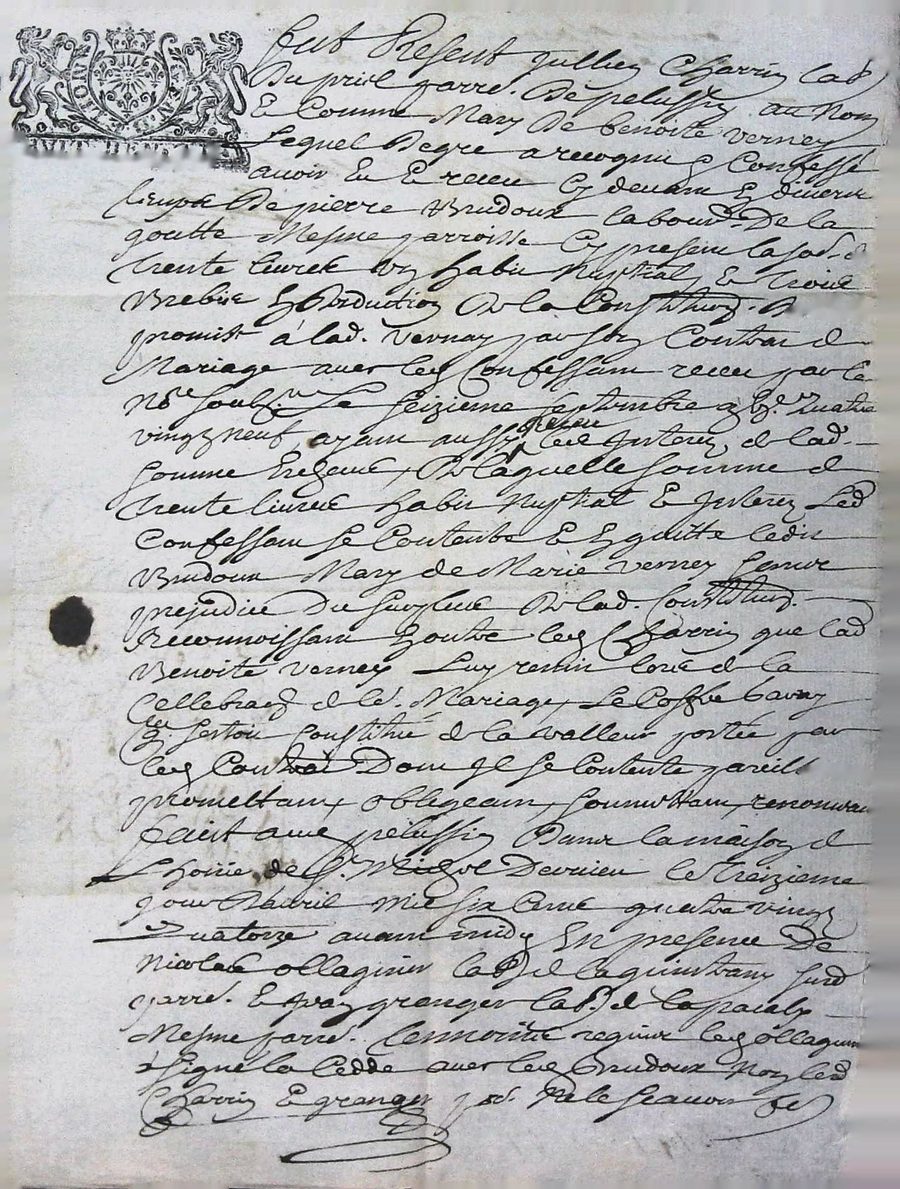 fut Present Jullien Charrin lab^r
Du priel parre. De pelussin au Nom
Et Comme Mary De benoite verney
Lequel Degre a recognu & Confessé
auoir Eu & receu Cy deuant En diuers
temps De pierre Brudoux labour. De la
goutte Mesme parroisse Cy present la so^e. d
trente liures un habit Nuptial Et trois
Brebis En Deduction De la Constitu^on.
promise á lad. verney par son Contrat d
Mariage auec led Confessant receu par le
No^re soubz^ne Le seizieme septembre quatre
vingz neuf ayant aussy receu les Interez de lad.
somme Escheus, De laquelle somme d
trente liures habit Nuptial & Interez Led
Confessant se Contente Et En quitte ledit
Brudoux Mary de Marie verney sans
prejudice Du surplus De lad. Constitu^on.
Reconnoissant Houtre led Charrin que lad
Benoite verney Luy remit lors de la
Cellebra^on d led. Mariage, Le Coffre garny
q. sestoit Constitué d la valleur portée par
led Contrat Dont Il se Contente pareill
promettant, obligeant, soumettant, renonceant
faict aud pelussin Dans la maison d
Lhoirie de Devrieu le treizieme
jour Dauril Mil six Cens quatre vingz
Quatorze auant midy En presence De
Nicolas ollagnier lab^r d susd
parre. & granger lab^r. d
Mesme parre. tesmoins requis led ollagnier
a signé la Cedde auec led Brudoux Non led
Charrin & granger p^r. Ne le scauoir